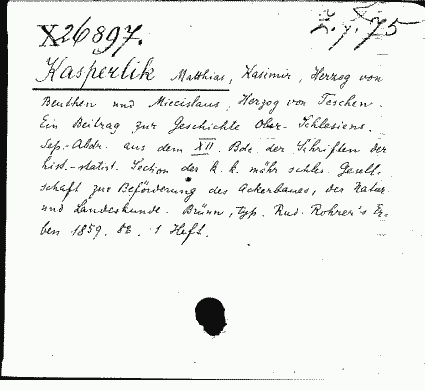 X26897.
Z. y. 75
Kasperlik Matthias, Kasimir, Herzog von
Beuthen und Miecislaus, Herzog von Teschen.
Ein Beitrag zur Geschichte Ober-Schlesiens.
Sep.-Abdr. aus dem XII. Bde. der Schriften der
hist.-statist. Section der k. k. mähr schles. Gesell-
schaft zur Beförderung des Ackerbaues, der Natur
und Landeskunde. Brünn, typ. Rud. Rohrer's Er-
ben 1859. 8º. 1 Heft.